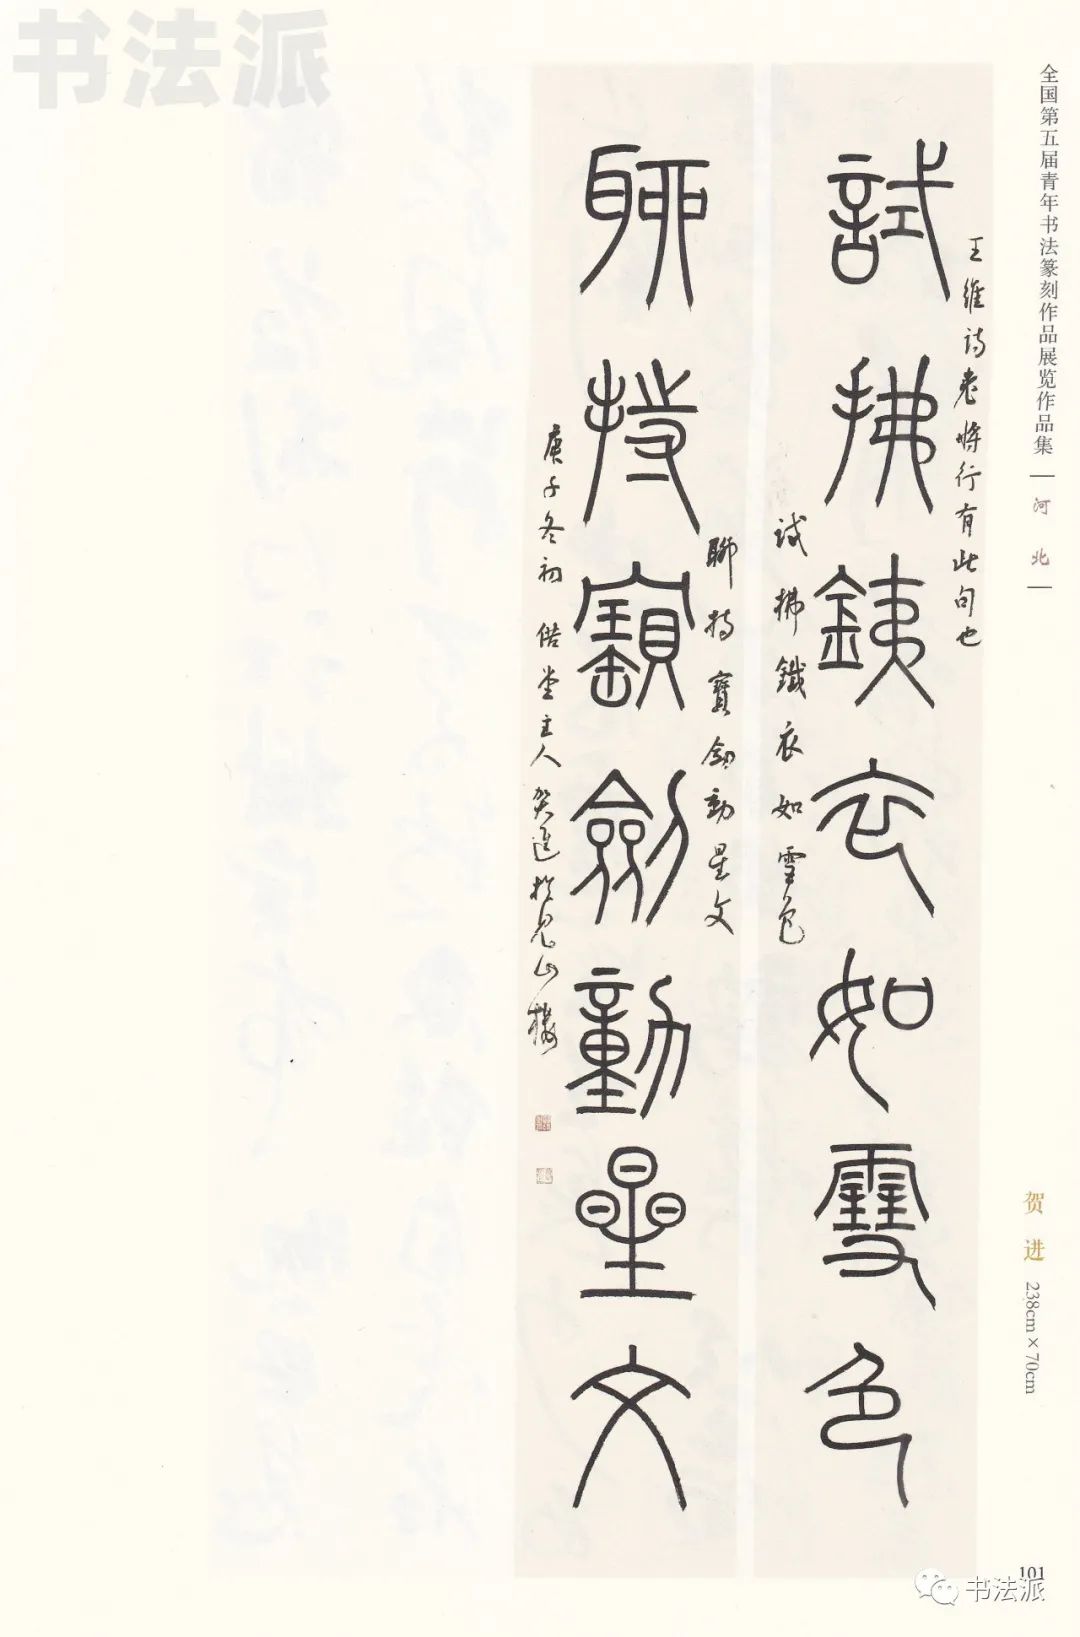 书法派
全国第五届青年书法篆刻作品展览作品集
河北
贺进
238cm×70cm
王维诗老将行有此句也
試拂鐵衣如雪色
试拂鐵衣如雪色
聊持寶劍動星文
聊持寶劍動星文
庚子冬初 偕堂主人贺進於見山樓
101
书法派